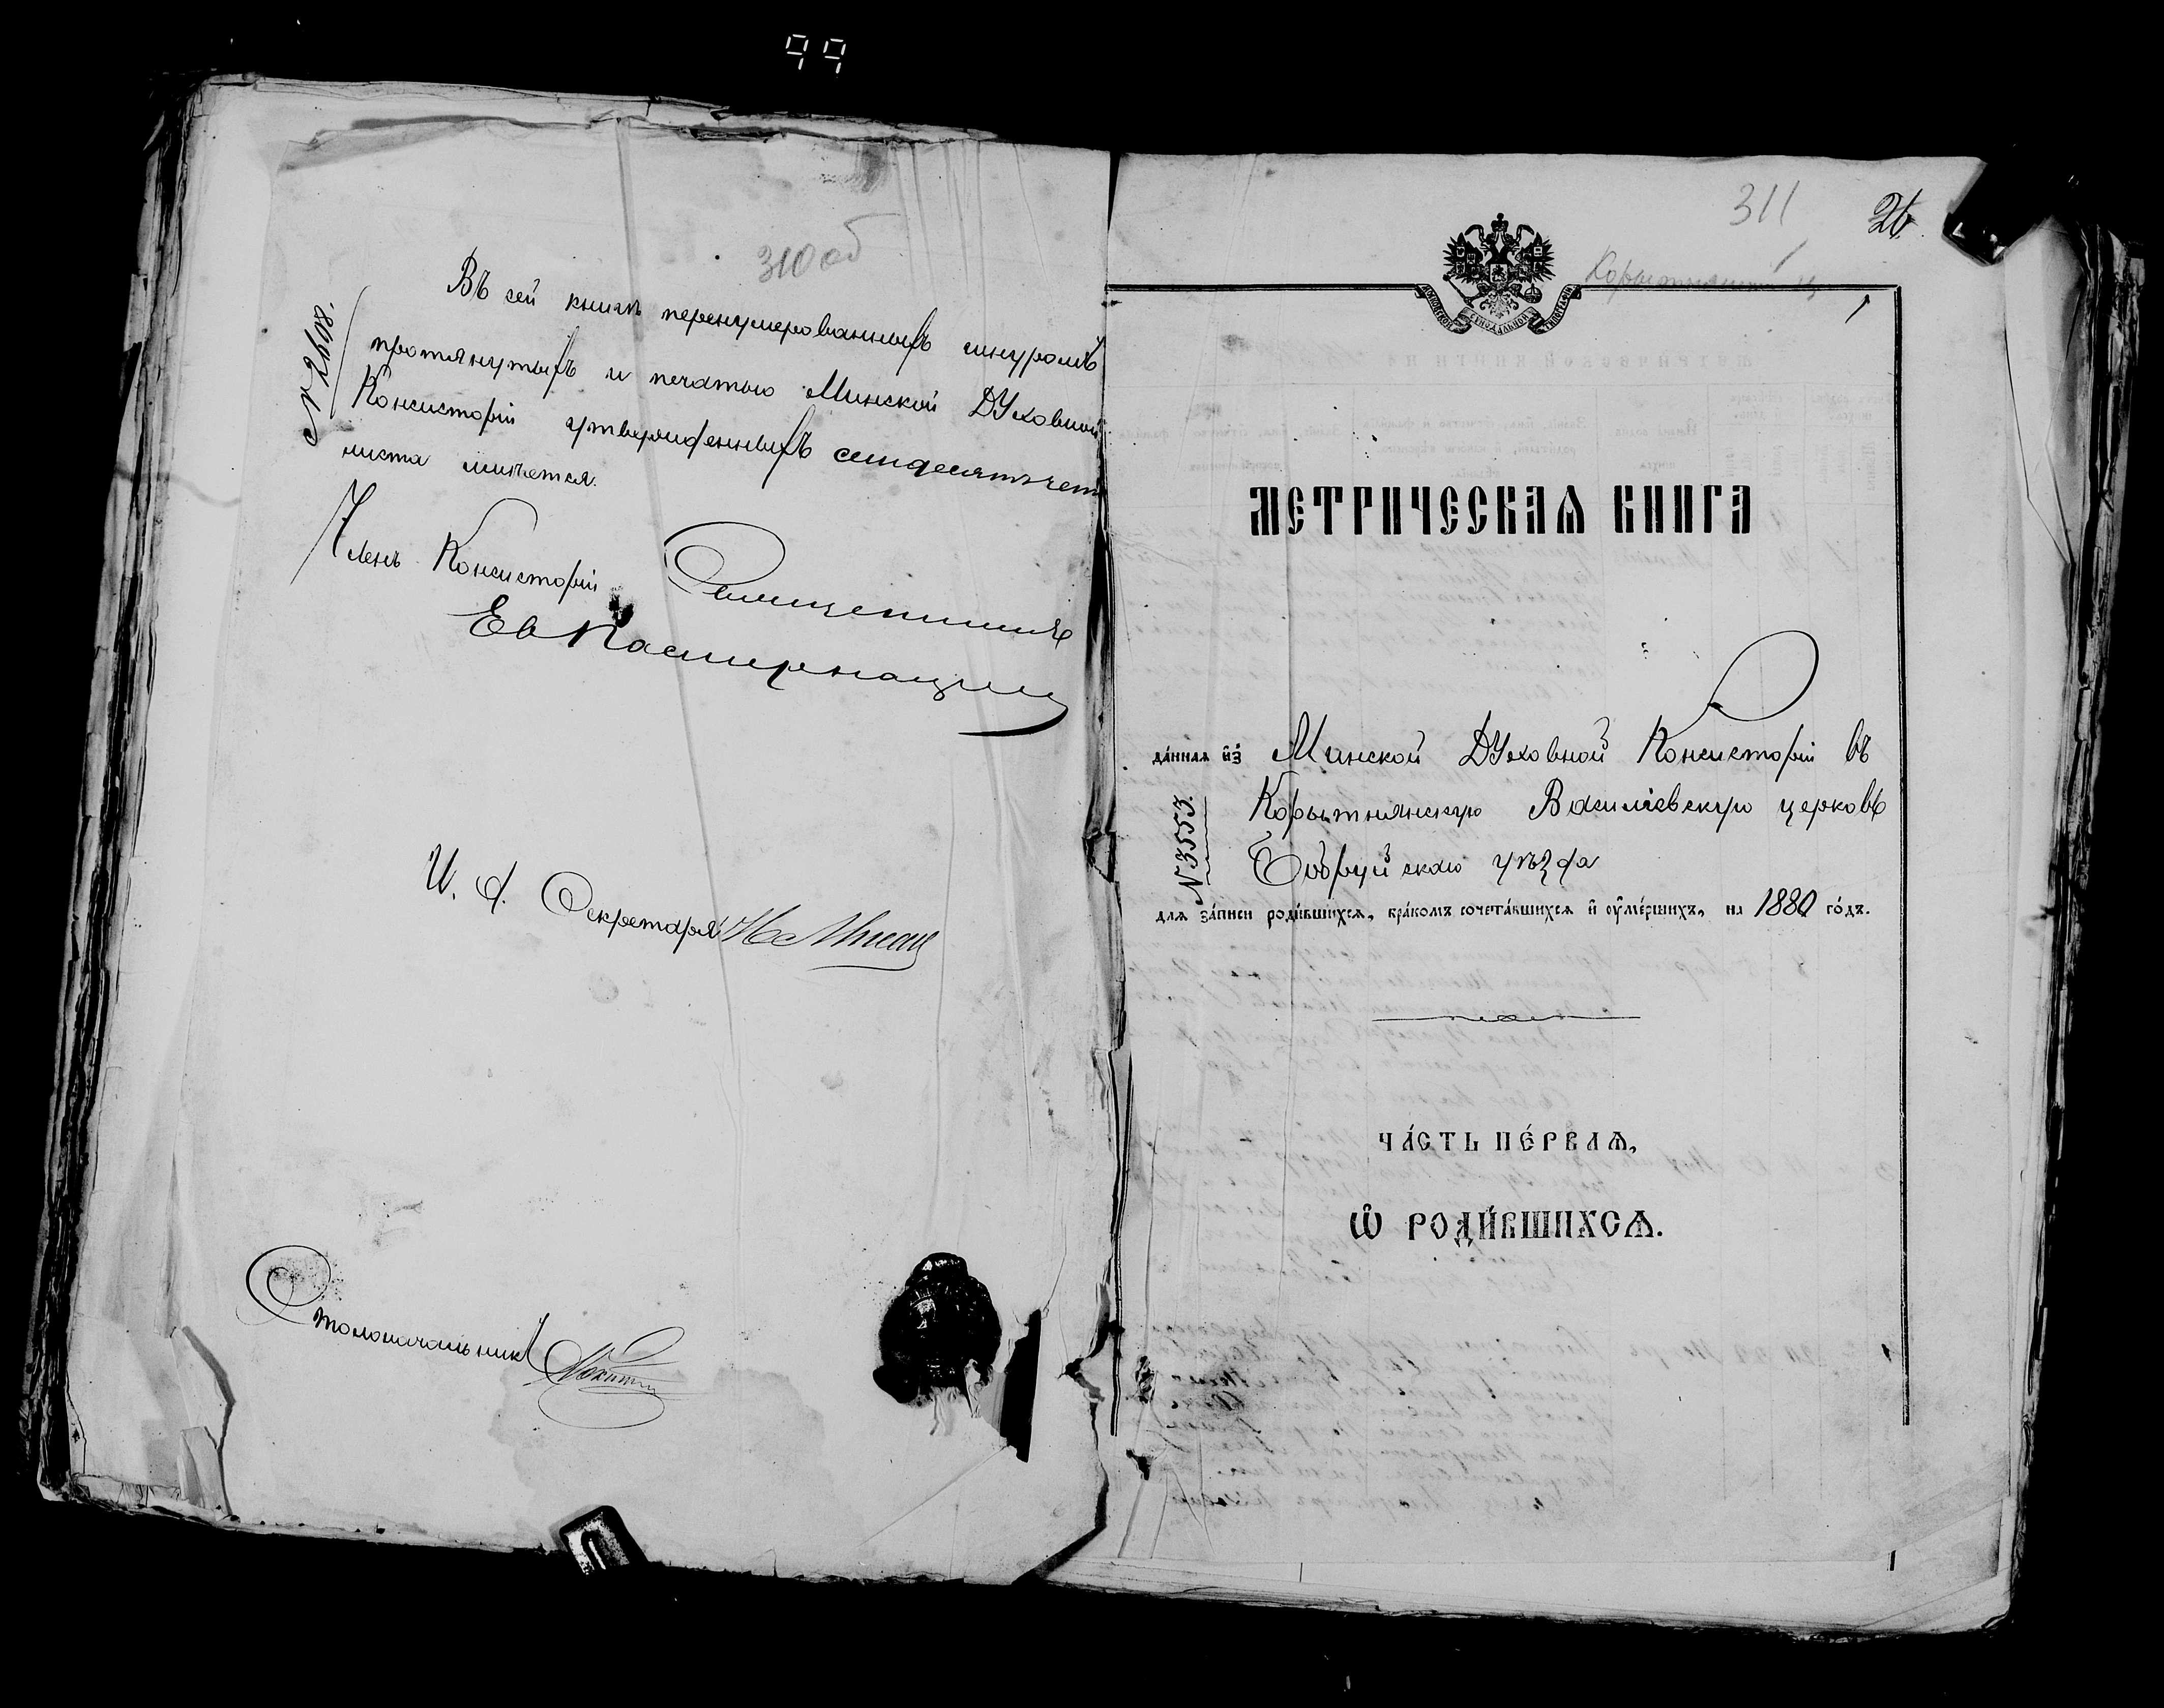 99
310 об
№ 2608.
Въ сей книгѣ перенумерованныхъ шнуромъ
протянутыхъ и печатью Минской Духовной
Консисторіи утвержденныхъ семдесятъ чет
листа имѣется.
Членъ Консисторіи Священникъ
И. д. Секретаря
Столоначальникъ
311
26
МОСКОВСКОЙ СѴНОДАЛЬНОЙ ТИПОГРАФІИ
1
МЕТРИЧЕСКАѦ КНИГА
да́ннаѧ и҆з̾ Минской Духовной Консисторіи въ
Корытнянскую Василіевскую церковь
№ 3553.
Бобруйскаго уѣзда
для за́писи роди́вшихсѧ, бра́комъ сочета́вшихсѧ и҆ ᲂу҆ме́ршихъ, на 1880 го́дъ.
ЧА́СТЬ ПЕ́РВАѦ,
Ѽ РОДИ́ВШИХСѦ.